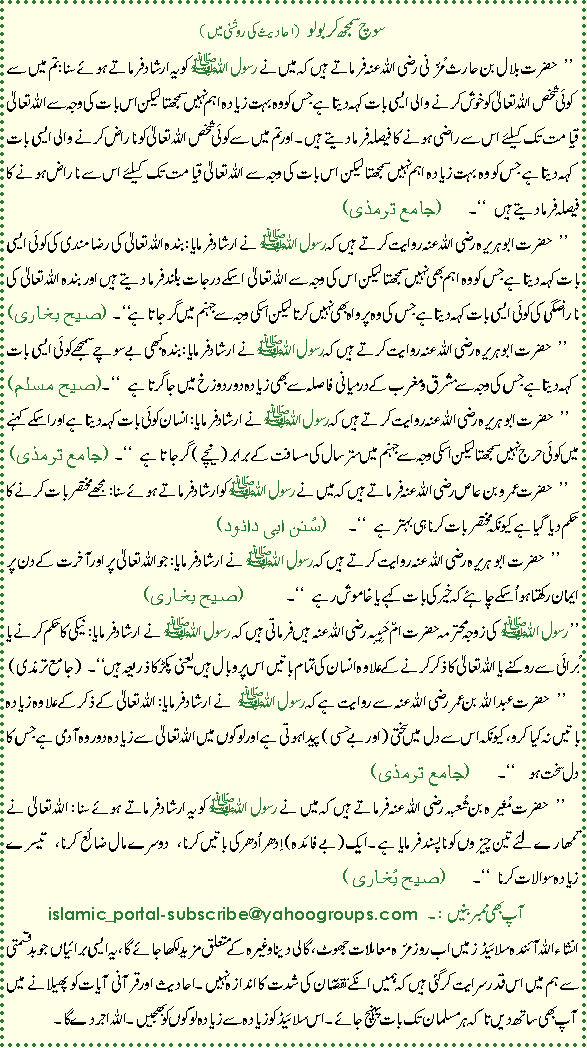 سوچ سمجھ کر بولو (احادیث کی روشنی میں)
’’ حضرت بلال بن حارث مُزنی رضی اللہ عنہ فرماتے ہیں کہ میں نے رسول اللہ ﷺ کو یہ ارشاد فرماتے ہوئے سنا: تم میں سے
کوئی شخص اللہ تعالیٰ کو خوش کرنے والی ایسی بات کہہ دیتا ہے جس کو وہ بہت زیادہ اہم نہیں سمجھتا لیکن اس بات کی وجہ سے اللہ تعالیٰ
قیامت تک کیلئے اس سے راضی ہونے کا فیصلہ فرما دیتے ہیں۔ اور تم میں سے کوئی شخص اللہ تعالیٰ کو ناراض کرنے والی ایسی بات
کہہ دیتا ہے جس کو وہ بہت زیادہ اہم نہیں سمجھتا لیکن اس بات کی وجہ سے اللہ تعالیٰ قیامت تک کیلئے اس سے ناراض ہونے کا
فیصلہ فرما دیتے ہیں ‘‘۔ (جامع ترمذی)
’’ حضرت ابو ہریرہ رضی اللہ عنہ روایت کرتے ہیں کہ رسول اللہ ﷺ نے ارشاد فرمایا: بندہ اللہ تعالیٰ کی رضامندی کی کوئی ایسی
بات کہہ دیتا ہے جس کو وہ اہم بھی نہیں سمجھتا لیکن اس کی وجہ سے اللہ تعالیٰ اسکے درجات بلند فرما دیتے ہیں اور بندہ اللہ تعالیٰ کی
ناراضگی کی کوئی ایسی بات کہہ دیتا ہے جس کی وہ پرواہ بھی نہیں کرتا لیکن اسکی وجہ سے جہنم میں گر جاتا ہے‘‘۔ (صیح بخاری)
’’ حضرت ابو ہریرہ رضی اللہ عنہ روایت کرتے ہیں کہ رسول اللہ ﷺ نے ارشاد فرمایا: بندہ کبھی بے سوچے سمجھے کوئی ایسی بات
کہہ دیتا ہے جس کی وجہ سے مشرق و مغرب کے درمیانی فاصلہ سے بھی زیادہ دور دوزخ میں جا گرتا ہے ‘‘۔ (صیح مسلم)
’’ حضرت ابو ہریرہ رضی اللہ عنہ روایت کرتے ہیں کہ رسول اللہ ﷺ نے ارشاد فرمایا: انسان کوئی بات کہہ دیتا ہے اور اسکے کہنے
میں کوئی حرج نہیں سمجھتا لیکن اسکی وجہ سے جہنم میں ستر سال کی مسافت کے برابر (نیچے) گر جاتا ہے ‘‘۔ (جامع ترمذی)
’’ حضرت عمرو بن عاص رضی اللہ عنہ فرماتے ہیں کہ میں نے رسول اللہ ﷺ کو ارشاد فرماتے ہوئے سنا: مجھے مختصر بات کرنے کا
حکم دیا گیا ہے کیونکہ مختصر بات کرنا ہی بہتر ہے ‘‘۔ (سُنن ابی دائود)
’’ حضرت ابو ہریرہ رضی اللہ عنہ روایت کرتے ہیں کہ رسول اللہ ﷺ نے ارشاد فرمایا: جو اللہ تعالیٰ پر اور آخرت کے دن پر
ایمان رکھتا ہو اُسکے چاہئے کہ خیر کی بات کہے یا خاموش رہے ‘‘۔ (صیح بخاری)
’’ رسول اللہ ﷺ کی زوجہ محترمہ حضرت امّ حَبِیبہ رضی اللہ عنہ ہیں فرماتی ہیں کہ رسول اللہ ﷺ نے ارشاد فرمایا: نیکی کا حکم کرنے یا
بُرائی سے روکنے یا اللہ تعالیٰ کا ذکر کرنے کے علاوہ انسان کی تمام باتیں اس پر وبال ہیں یعنی پکڑ کا ذریعہ ہیں‘‘۔ (جامع ترمذی)
’’ حضرت عبداللہ بن عمر رضی اللہ عنہ سے روایت ہے کہ رسول اللہ ﷺ نے ارشاد فرمایا: اللہ تعالیٰ کے ذکر کے علاوہ زیادہ
باتیں نہ کیا کرو، کیونکہ اس سے دل میں سختی (اور بے حسی) پیدا ہوتی ہے اور لوگوں میں اللہ تعالیٰ سے زیادہ دور وہ آدمی ہے جس کا
دل سخت ہو ‘‘۔ (جامع ترمذی)
’’ حضرت مُغیرہ بن شُعبہ رضی اللہ عنہ فرماتے ہیں کہ میں نے رسول اللہ ﷺ کو یہ ارشاد فرماتے ہوئے سنا: اللہ تعالیٰ نے
تمھارے لئے تین چیزوں کو ناپسند فرمایا ہے۔ ایک (بے فائدہ) اِدھر اُدھر کی باتیں کرنا، دوسرے مال ضائع کرنا، تیسرے
زیادہ سوالات کرنا ‘‘۔ (صیح بُخاری)
آپ بھی ممبر بنیں :۔ islamic_portal-subscribe@yahoogroups.com
انشاء اللہ آئندہ سلائیڈز میں اب روز مرّہ معاملات جھوٹ، گالی دینا وغیرہ کے متعلق مزید لکھا جائے گا، یہ ایسی برائیاں جو بدقسمتی
سے ہم میں اس قدر سرایت کر گئی ہیں کہ ہمیں انکے نقصان کی شدت کا اندازہ نہیں۔ احادیث اور قرآنی آیات کو پھیلانے میں
آپ بھی ساتھ دیں تاکہ ہر مسلمان تک بات پہنچ جائے۔ اس سلائیڈ کو زیادہ سے زیادہ لوگوں کو بھیجیں۔ اللہ اجر دے گا۔